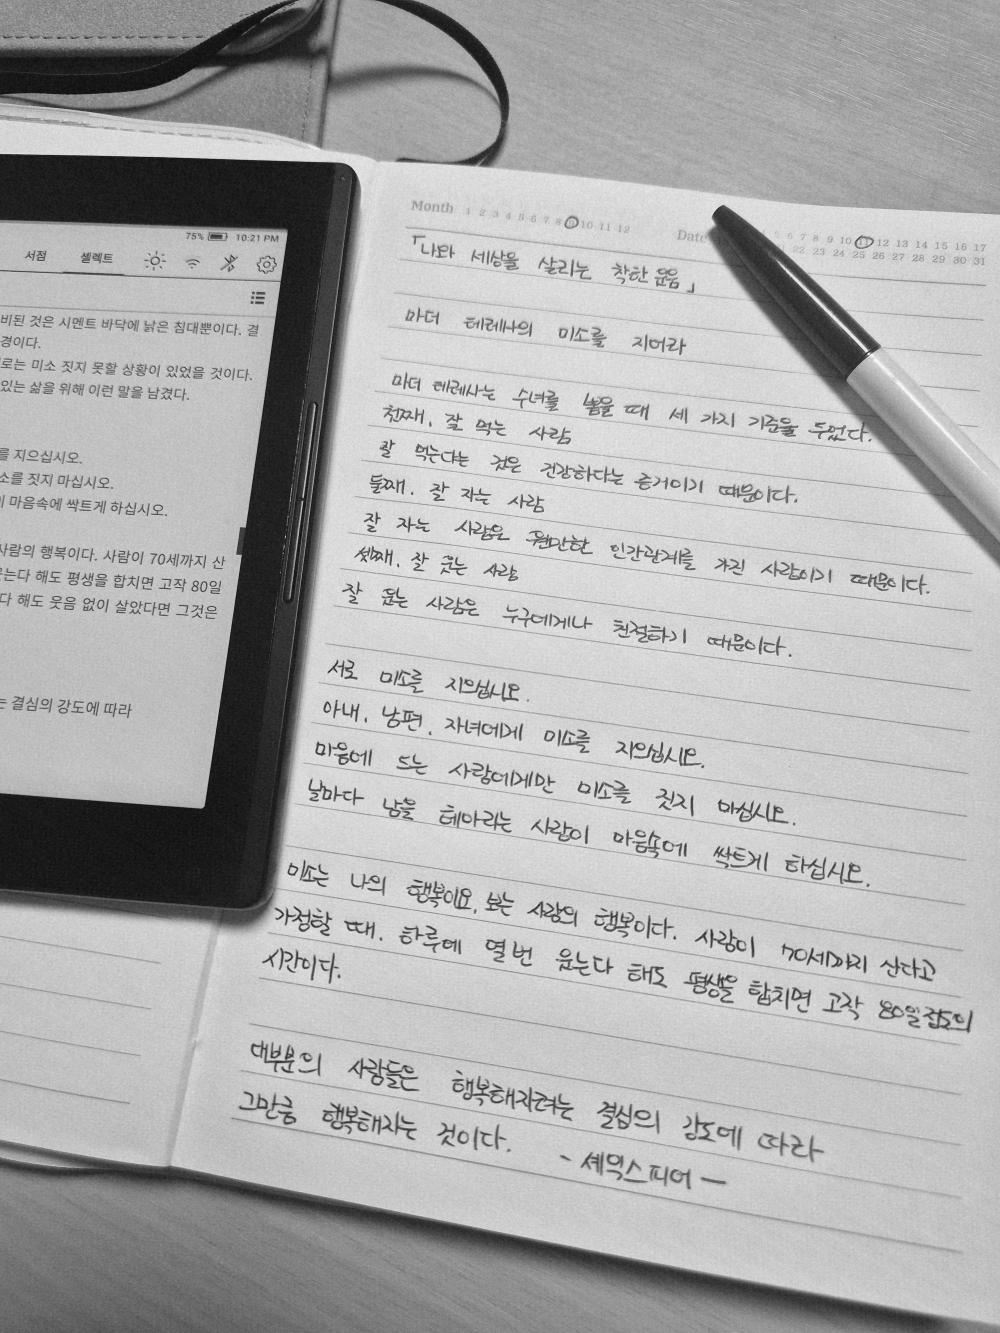 75% 10:21 PM
서점 셀렉트
비된 것은 시멘트 바닥에 낡은 침대뿐이다. 결
경이다.
로는 미소 짓지 못할 상황이 있었을 것이다.
있는 삶을 위해 이런 말을 남겼다.
를 지으십시오.
소를 짓지 마십시오.
마음속에 싹트게 하십시오.
사람의 행복이다. 사람이 70세까지 산
는다 해도 평생을 합치면 고작 80일
다 해도 웃음 없이 살았다면 그것은
는 결심의 강도에 따라
Month 1 2 3 4 5 6 7 8 9 10 11 12
Date 5 6 7 8 9 10 11 12 13 14 15 16 17
22 23 24 25 26 27 28 29 30 31
「나와 세상을 살리는 착한 웃음」
마더 테레사의 미소를 지어라
마더 테레사는 수녀를 뽑을 때 세 가지 기준을 두었다.
첫째, 잘 먹는 사람
잘 먹는다는 것은 건강하다는 증거이기 때문이다.
둘째, 잘 자는 사람
잘 자는 사람은 원만한 인간관계를 가진 사람이기 때문이다.
셋째, 잘 웃는 사람
잘 웃는 사람은 누구에게나 친절하기 때문이다.
서로 미소를 지으십시오.
아내, 남편, 자녀에게 미소를 지으십시오.
마음에 드는 사람에게만 미소를 짓지 마십시오.
날마다 남을 헤아리는 사람이 마음속에 싹트게 하십시오.
미소는 나의 행복이요, 보는 사람의 행복이다. 사람이 70세까지 산다고
가정할 때, 하루에 열 번 웃는다 해도 평생을 합치면 고작 80일 정도의
시간이다.
대부분의 사람들은 행복해지려는 결심의 강도에 따라
그만큼 행복해지는 것이다. - 셰익스피어 -